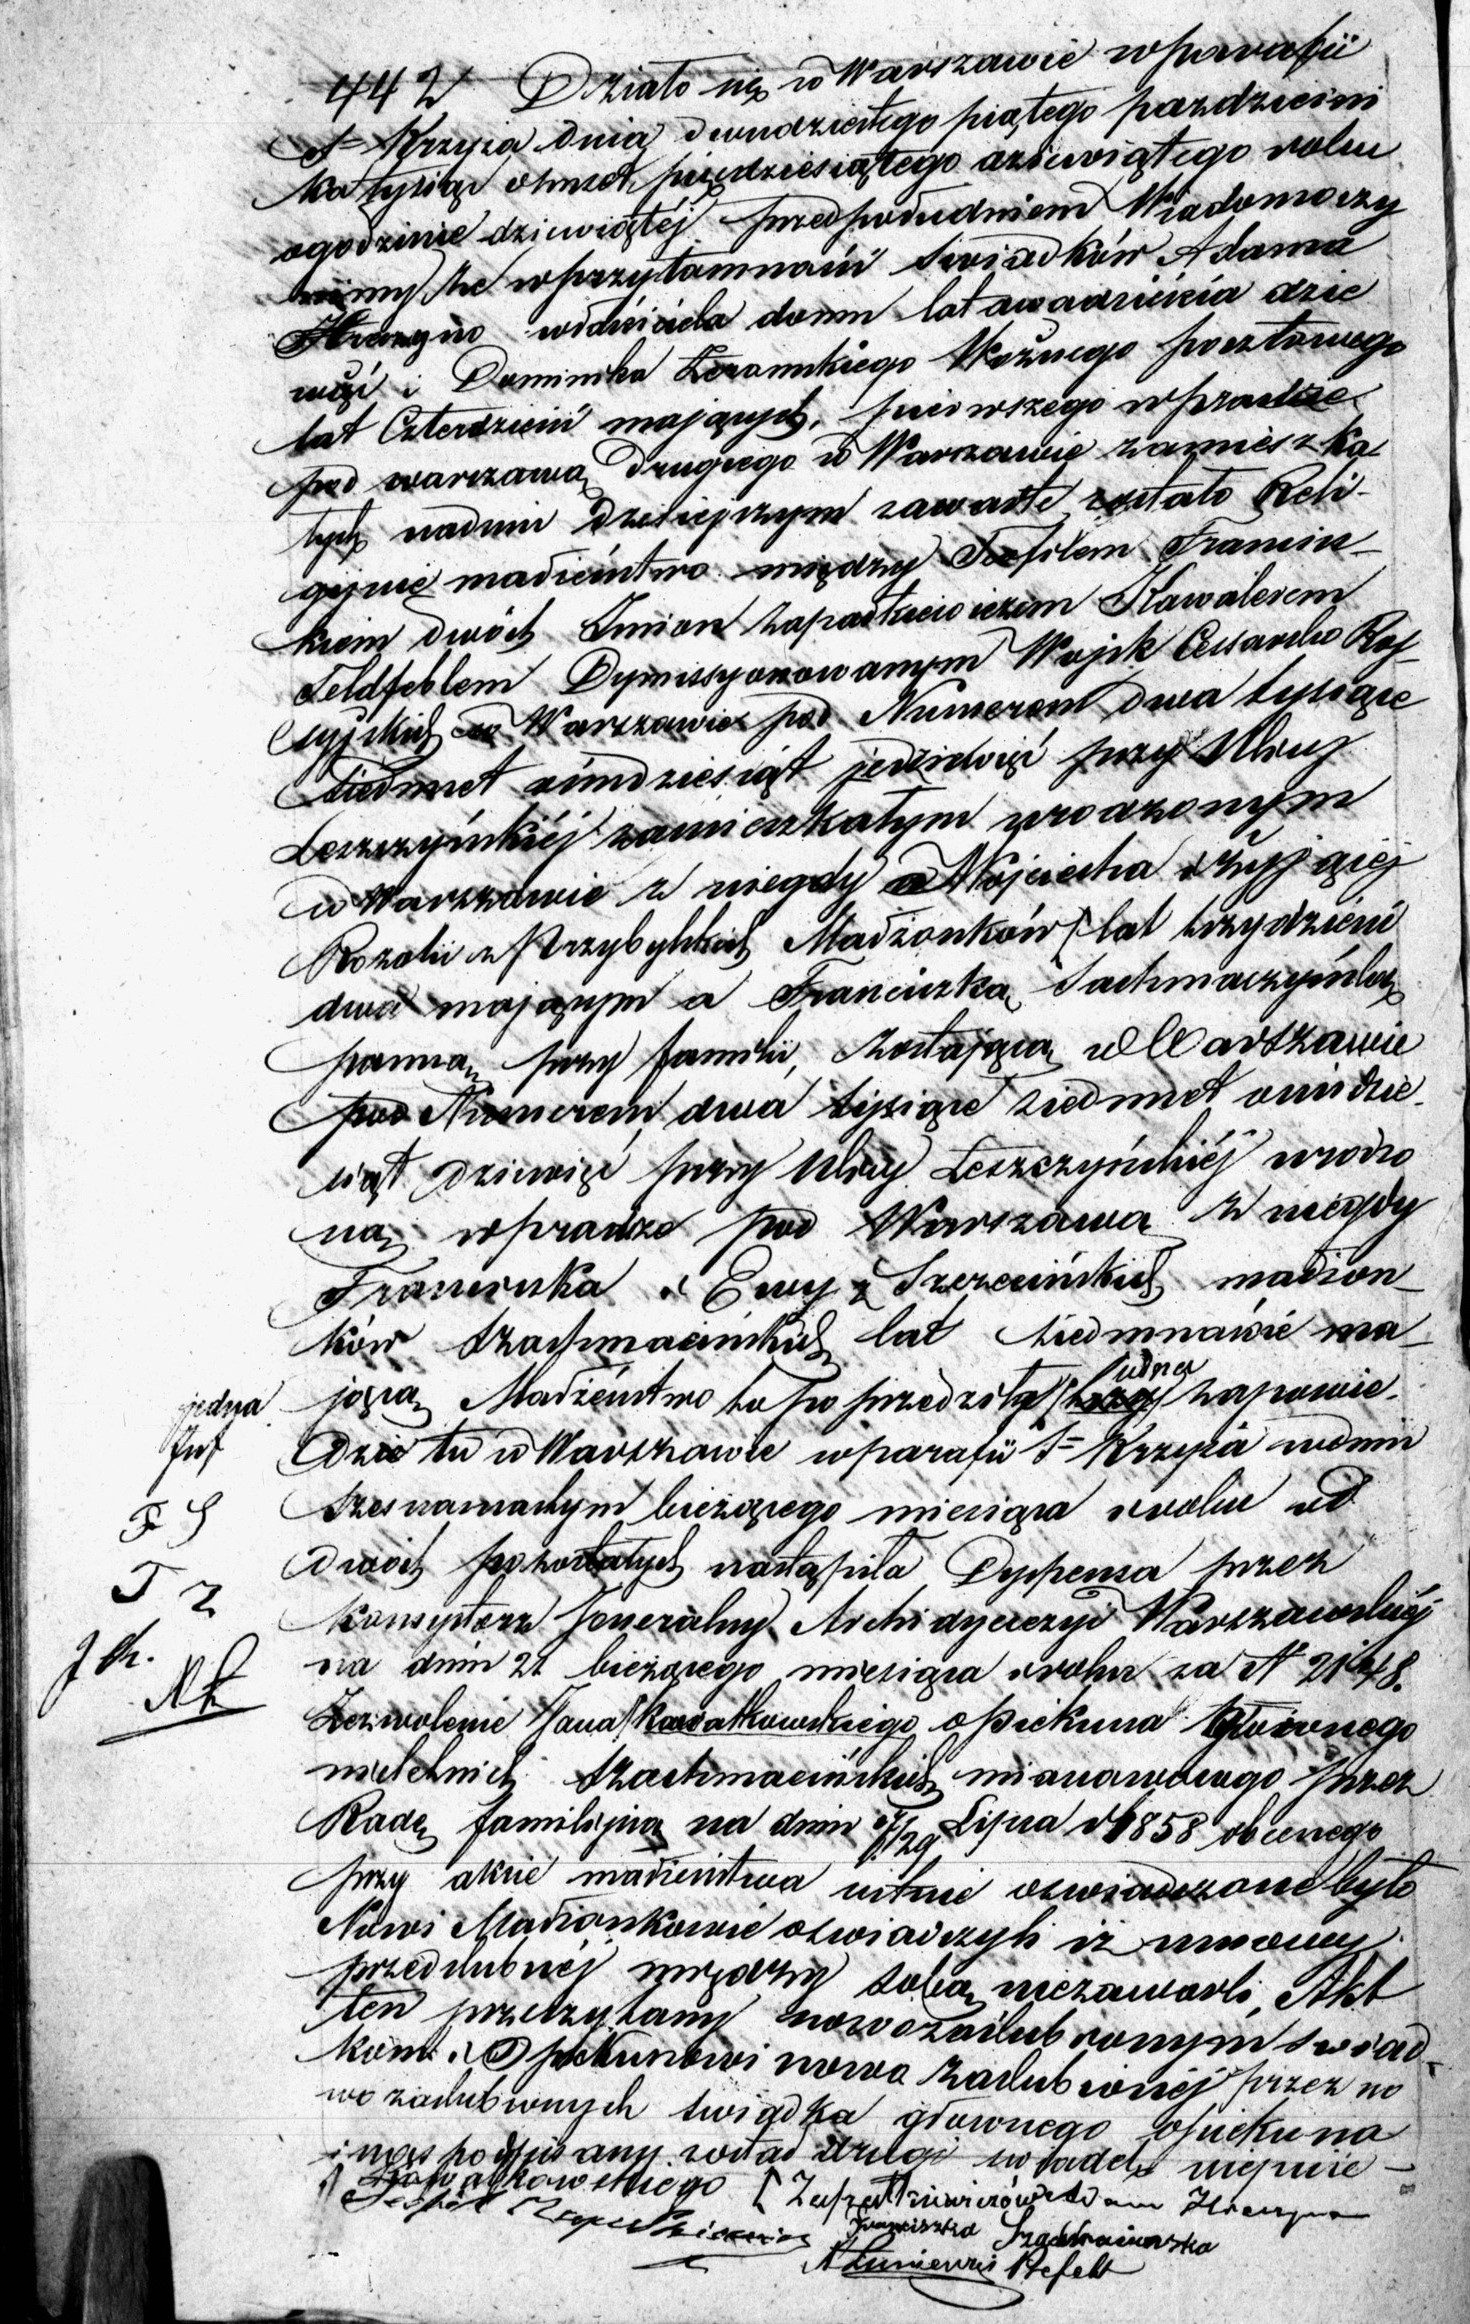 442 Działo się w Warszawie w parafii
Sº Krzyża dnia dwudziestego piątego pazdzierni
ka tysiąc ośmset pięćdziesiątego dziewiątego roku
o godzinie dziewiątéj przed południem Wiadomo czy
nimy że w przytomności świadków Adama
właściciela domu lat dwadzieścia dzie
więć i Dominika Woźnego pocztowego
lat Czterdzieści mających, pierwszego w pradze
pod warszawą drugiego w Warszawie zamieszka
łych na dniu dzisiejszym zawarte zostało Reli-
gijnie małżeństwo między Teofilem Francisz-
kiem dwóch Imion Zapałkiewiczem Kawalerem
Feldfeblem Dymissyonowanym Wojsk Cessarko Ros-
syjskich w Warszawie pod Numerem dwa tysiące
siedmset ośmdziesiąt dziewięć przy Ulicy
Leszczyńskiéj zamieszkałym urodzonym
w Warszawie z niegdy Wojciecha i żyjącéj
Rozalii z Przybylskich Małżonków lat trzydzieści
dwa mającym a Franciszką Szachmaczyńską
panną przy familii, zostającą w Warszawie
pod Numerem dwa tysiące siedmset ośmdzie-
siąt dziewięć przy Ulicy Leszczyńskiéj urodzo
ną w pradze pod Warszawą z niegdy
Franciszka i Ewy z Szczecińskich małżon-
ków Szachmacińskich lat siedmnaście ma-
jącą Małżeństwo to poprzedziły trzy jedna zapowie-
jedna
dzie tu w Warszawie w parafii Sº Krzyża w dniu
szesnastym bieżącego miesiąca i roku od
F S
dwóch pozostałych nastąpiła Dyspensa przez
T Z
Konsystorz Jeneralny Archidyecezyi Warszawskiéj
na dniu 21 bieżącego miesiąca i roku za N 2148.
Zezwolenie Jana Kawałkowskiego opiekuna głównego
nieletnich Szachmacińskich mianowanego przez
Radę familijną na dniu 17/29 Lipca 1858 obecnego
przy akcie małżeństwa ustnie oświadczone było
Nowi Małżonkowie oświadczyli iż umowy
przedślubnéj między sobą niezawarli, Akt
ten przeczytany nowozaślubionym świad-
kom i Opiekunowi nowo zaślubionéj przez no
wo zaślubionych świadka głównego opiekuna
i nas podpisany został drugi świadek niepiśe-
Kawałkowskiego Zapałkiewiczów Adam
Teofil Zapałkiewicz Franciszka Szachmacińska